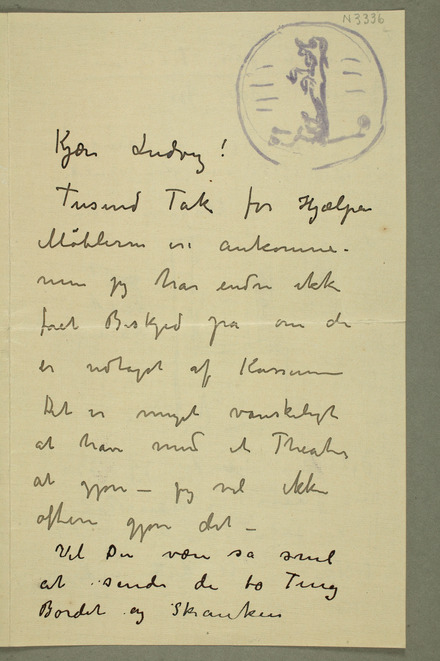 N 3336
Kjære Ludvig!
Tusend Tak for Hjælpen
Møblerne er ankomne –
men jeg har endnu ikke
faaet Beskjed på om de
er udtaget af Kasserne
Det er meget vanskeligt
at have med et Theater
at gjøre – jeg vil ikke
oftere gjøre det –
Vil Du være så snil
at sende de to Ting
Bordet og Skranken